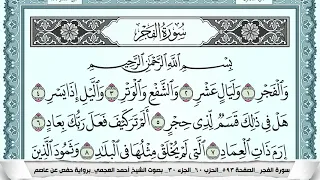 سُورَةُ الفَجْرِ
بِسْمِ اللَّهِ الرَّحْمَٰنِ الرَّحِيمِ
وَالْفَجْرِ ۝١ وَلَيَالٍ عَشْرٍ ۝٢ وَالشَّفْعِ وَالْوَتْرِ ۝٣ وَاللَّيْلِ إِذَا يَسْرِ ۝٤
هَلْ فِي ذَٰلِكَ قَسَمٌ لِّذِي حِجْرٍ ۝٥ أَلَمْ تَرَ كَيْفَ فَعَلَ رَبُّكَ بِعَادٍ ۝٦
إِرَمَ ذَاتِ الْعِمَادِ ۝٧ الَّتِي لَمْ يُخْلَقْ مِثْلُهَا فِي الْبِلَادِ ۝٨ وَثَمُودَ الَّذِينَ
سورة الفجر - الصفحة ٥٩٣ - الحزب ٦٠ - الجزء ٣٠ - بصوت الشيخ أحمد العجمي - برواية حفص عن عاصم